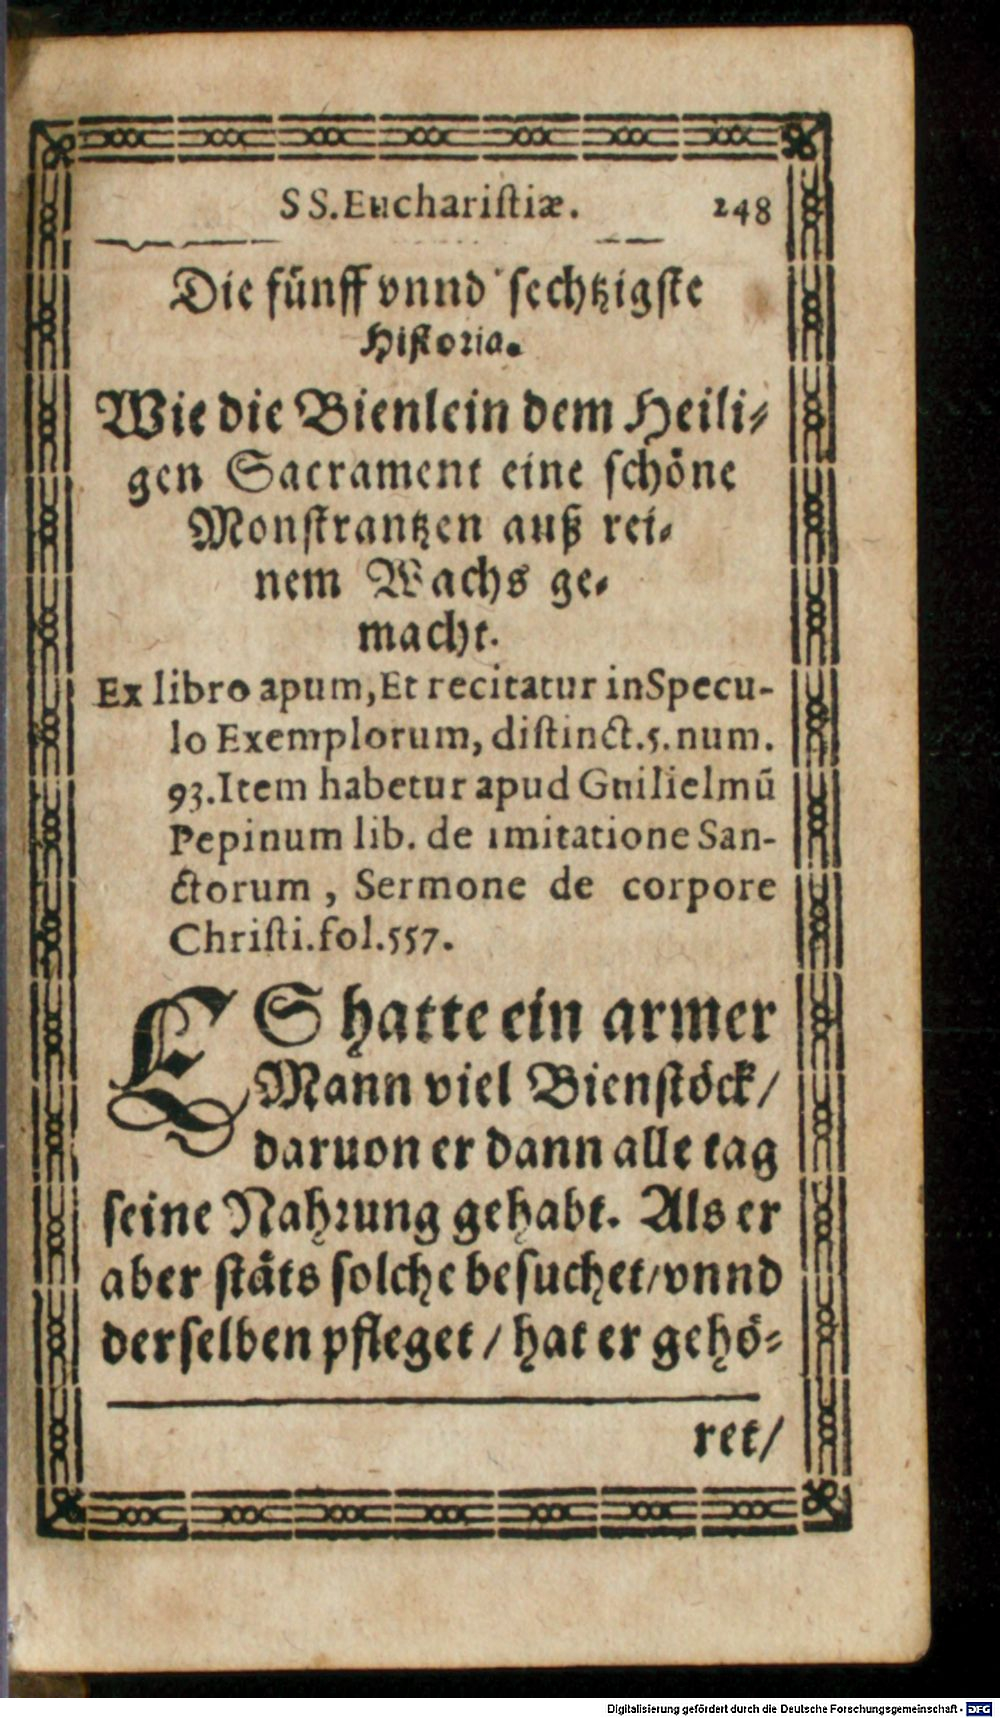 SS.Euchariſtiæ. 248
Die fünff vnnd ſechtzigſte
Hiſtoria.
Wie die Bienlein dem Heili⸗
gen Sacrament eine ſchöne
Monſtrantzen auß rei⸗
nem Wachs ge⸗
macht.
Ex libro apum, Et recitatur in Specu-
lo Exemplorum, diſtinct.5.num.
93.Item habetur apud Guilielmū
Pepinum lib. de imitatione San-
ctorum, Sermone de corpore
Chriſti.fol.557.
ES hatte ein armer
Mann viel Bienſtöck/
daruon er dann alle tag
ſeine Nahrung gehabt. Als er
aber ſtäts ſolche beſuchet/vnnd
derſelben pfleget/ hat er gehö⸗
ret/
Digitalisierung gefördert durch die Deutsche Forschungsgemeinschaft - DFG